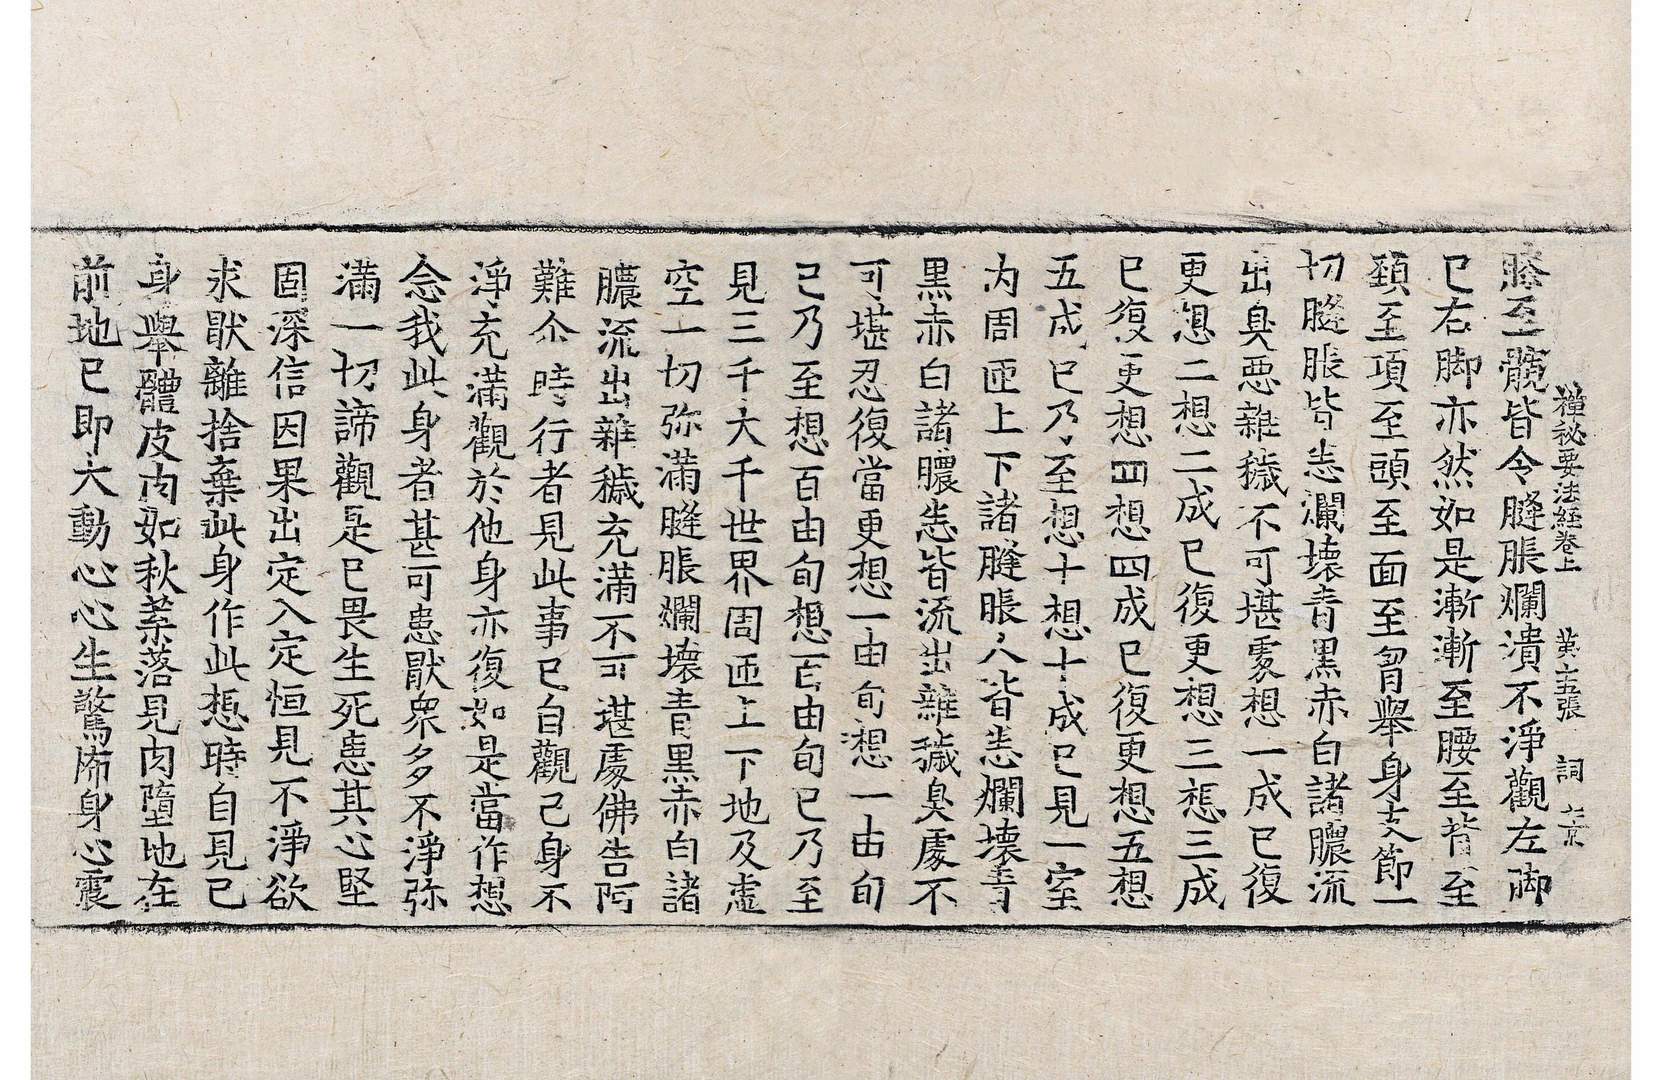 禪秘要法經卷上 第五張 詞
膝至髖皆令膖脹爛潰不淨觀左脚
已右脚亦然如是漸漸至腰至背至
頸至項至頭至面至胷舉身支節一
切膖脹皆悉爛壞青黑赤白諸膿流
出臭惡雜穢不可堪處想一成已復
更想二想二成已復更想三想三成
已復更想四想四成已復更想五想
五成已乃至想十想十成已見一室
内周匝上下諸膖脹人皆悉爛壞青
黑赤白諸膿悉皆流出雜穢臭處不
可堪忍復當更想一由旬想一由旬
已乃至想百由旬想百由旬已乃至
見三千大千世界周匝上下地及虛
空一切弥滿膖脹爛壞青黑赤白諸
膿流出雜穢充滿不可堪處佛告阿
難尒時行者見此事已自觀己身不
淨充滿觀於他身亦復如是當作想
念我此身者甚可患猒衆多不淨弥
滿一切諦觀是已畏生死患其心堅
固深信因果出定入定恒見不淨欲
求猒離捨棄此身作此想時自見已
身舉體皮肉如秋葉落見肉墮地在
前地已即大動心心生驚怖身心震